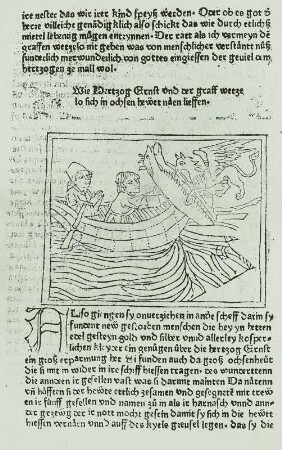 ire nester das wir irer kind speyß werden. Oder ob es got d
herre villeicht genädigklich also schickt das wir durch etlichs
mittel lebentig mügen entrynnen. Der ratt als ich vermeyn dē
graffen wetzelo nit geben was von menschlicher verstäntnuß
sunderlich mer wunderlich von gottes eingiessen der geuiel am
hertzogen ze mall wol.
Wie Hertzog Ernst vnd der graff wetze
lo sich in ochsen hewt näen liessen.
Also giengen sy onuerziehen in andre scheff darin sy
funden new gestorben menschen die bey yn hetten
edel gesteyn gold vnd silber vnnd allerley kosper-
lichen kleyder ein genügen über die hertzog Ernst
ein groß erparmung het Si funden auch da groß ochsenheüt
die si mit in wider in ire schiff hiessen tragen. des wundertten
die anderen ir gesellen vast was si darmit mainten Da näten
vn hüfften der hewte ettlich zesamen vnd gesegnet mit trew
en ir fünff gesellen vnd namen zů in als ir harnasch vnnd ann
der gezewg der ir nott mocht gesein damit sy sich in die hewt
hiessen vernäen vnnd auff des kyels greusel legen, das sy die